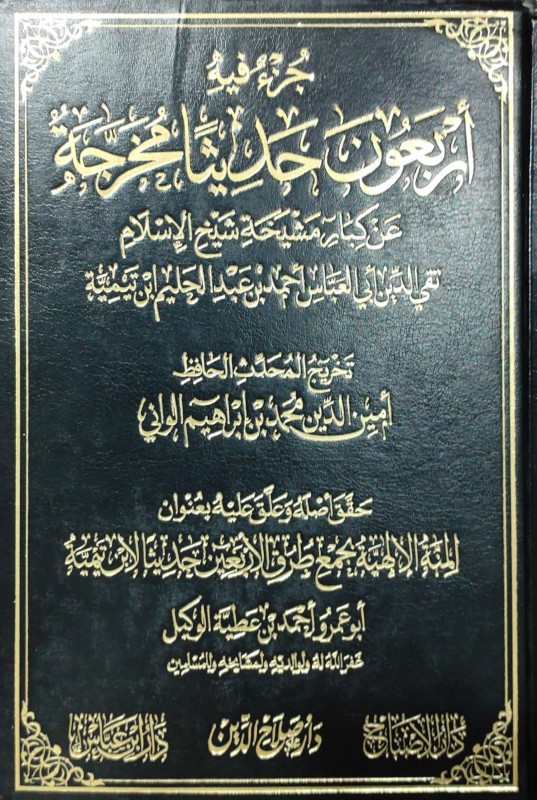 جُزْءٌ فِيهِ
أَرْبَعُونَ حَدِيثًا مُخَرَّجَةٌ
عَنْ كِبَارِ مَشْيَخَةِ شَيْخِ الإِسْلَامِ
تقي الدين أبي العباس أحمد بن عبد الحليم ابن تيمية
تخريج المحدث الحافظ
أمين الدين محمد بن إبراهيم الواني
حقق أصله وعلق عليه بعنوان
المنة الإلهية بجمع طرق الأربعين حديثا لابن تيمية
أبو عمرو أحمد بن عطية الوكيل
غفر الله له ولوالديه ولمشايخه وللمسلمين
دار الإصباح دار صلاح الدين دار ابن عباس